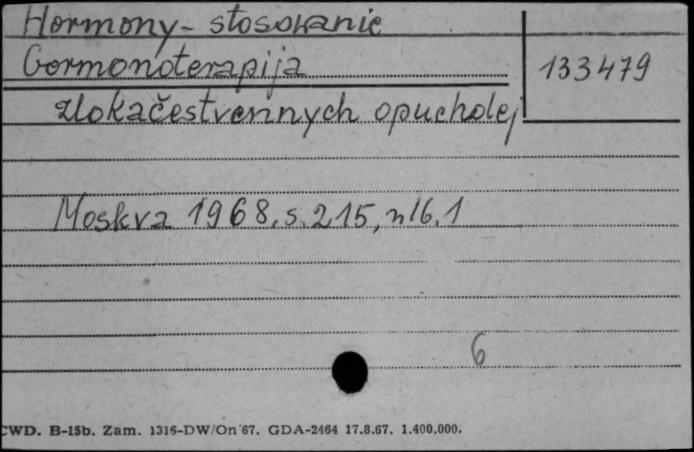 Hormony - stosowanie
Gormonoterapija
133479
zlokačestvennych opucholej
Moskva 1968, s. 215, nlb. 1
6
CWD. B-15b. Zam. 1316-DW/On 67. GDA-2464 17.8.67. 1.400.000.